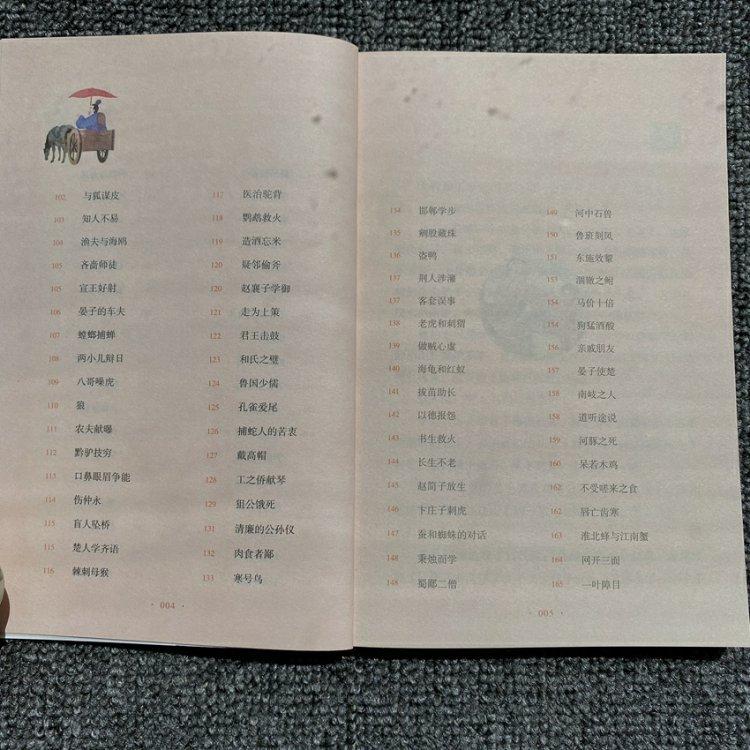 102 与狐谋皮
103 知人不易
104 渔夫与海鸥
105 吝啬师徒
105 宣王好射
106 晏子的车夫
107 螳螂捕蝉
108 两小儿辩日
109 八哥噪虎
110 狼
111 农夫献曝
112 黔驴技穷
113 口鼻眼眉争能
114 伤仲永
115 盲人坠桥
115 楚人学齐语
116 棘刺母猴
117 医治驼背
118 鹦鹉救火
119 造酒忘米
120 疑邻偷斧
120 赵襄子学御
121 走为上策
122 君王击鼓
123 和氏之璧
124 鲁国少儒
125 孔雀爱尾
126 捕蛇人的苦衷
127 戴高帽
128 工之侨献琴
129 狙公饿死
131 清廉的公孙仪
132 肉食者鄙
133 寒号鸟
· 004 ·
134 邯郸学步
135 剜股藏珠
136 盗鸭
137 荆人涉澭
137 客套误事
138 老虎和刺猬
139 做贼心虚
140 海龟和红蚁
141 拔苗助长
142 以德报怨
143 书生救火
144 长生不老
145 赵简子放生
146 卞庄子刺虎
147 蚕和蜘蛛的对话
148 秉烛而学
148 蜀鄙二僧
149 河中石兽
150 鲁班刻凤
151 东施效颦
153 涸辙之鲋
154 马价十倍
154 狗猛酒酸
156 亲戚朋友
157 晏子使楚
158 南岐之人
158 道听途说
159 河豚之死
160 呆若木鸡
162 不受嗟来之食
162 唇亡齿寒
163 淮北蜂与江南蟹
164 网开三面
165 一叶障目
· 005 ·